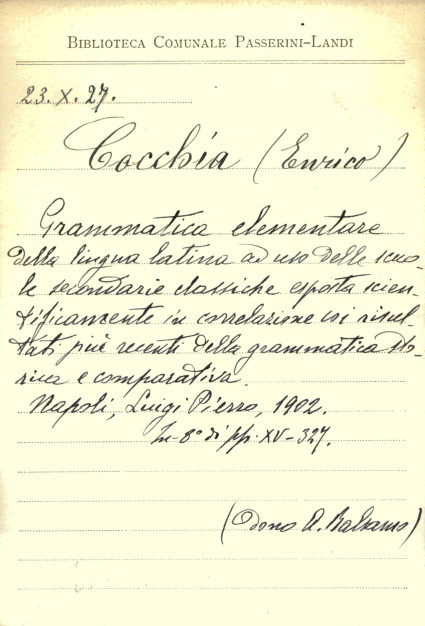 BIBLIOTECA COMUNALE PASSERINI-LANDI
23.X.27.
Cocchia (Enrico)
Grammatica elementare
della lingua latina ad uso delle scuo-
le secondarie classiche esposta scien-
tificamente in correlazione coi risul-
tati più recenti della grammatica sto-
rica e comparativa.
Napoli, Luigi Pierro, 1902.
In-8° di pp. XV-327.
(Dono A. Balsamo)